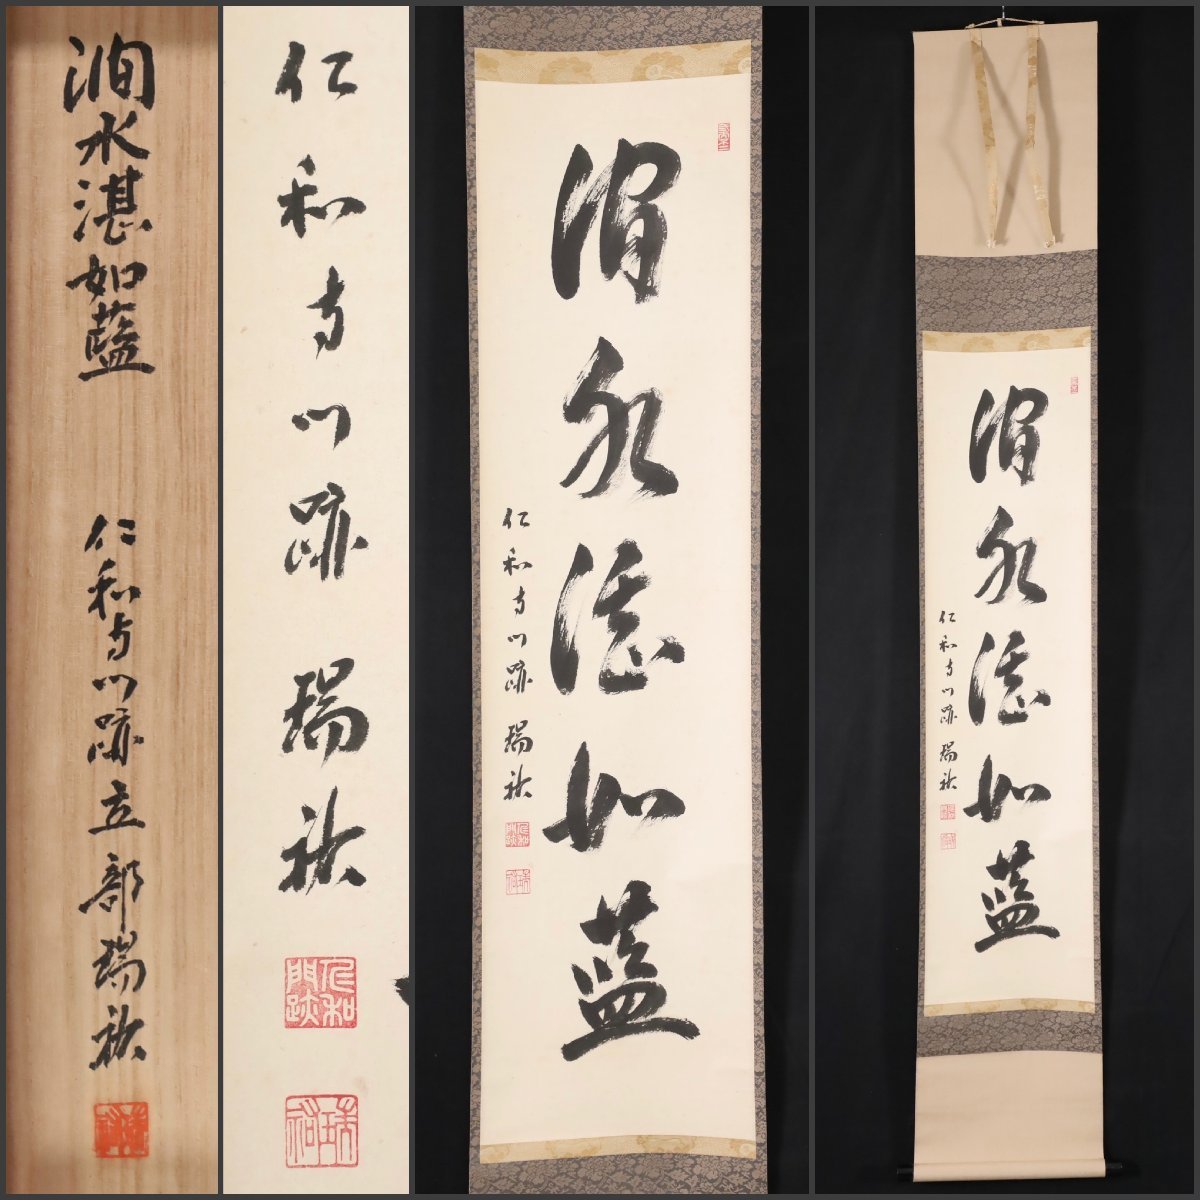 澗水湛如藍
仁和寺門跡立部瑞祐
仁和寺門跡 瑞祐
仁和
門跡
瑞祐
澗水湛如藍
仁和寺門跡 瑞祐
仁和
門跡
瑞祐
澗水湛如藍
仁和寺門跡 瑞祐